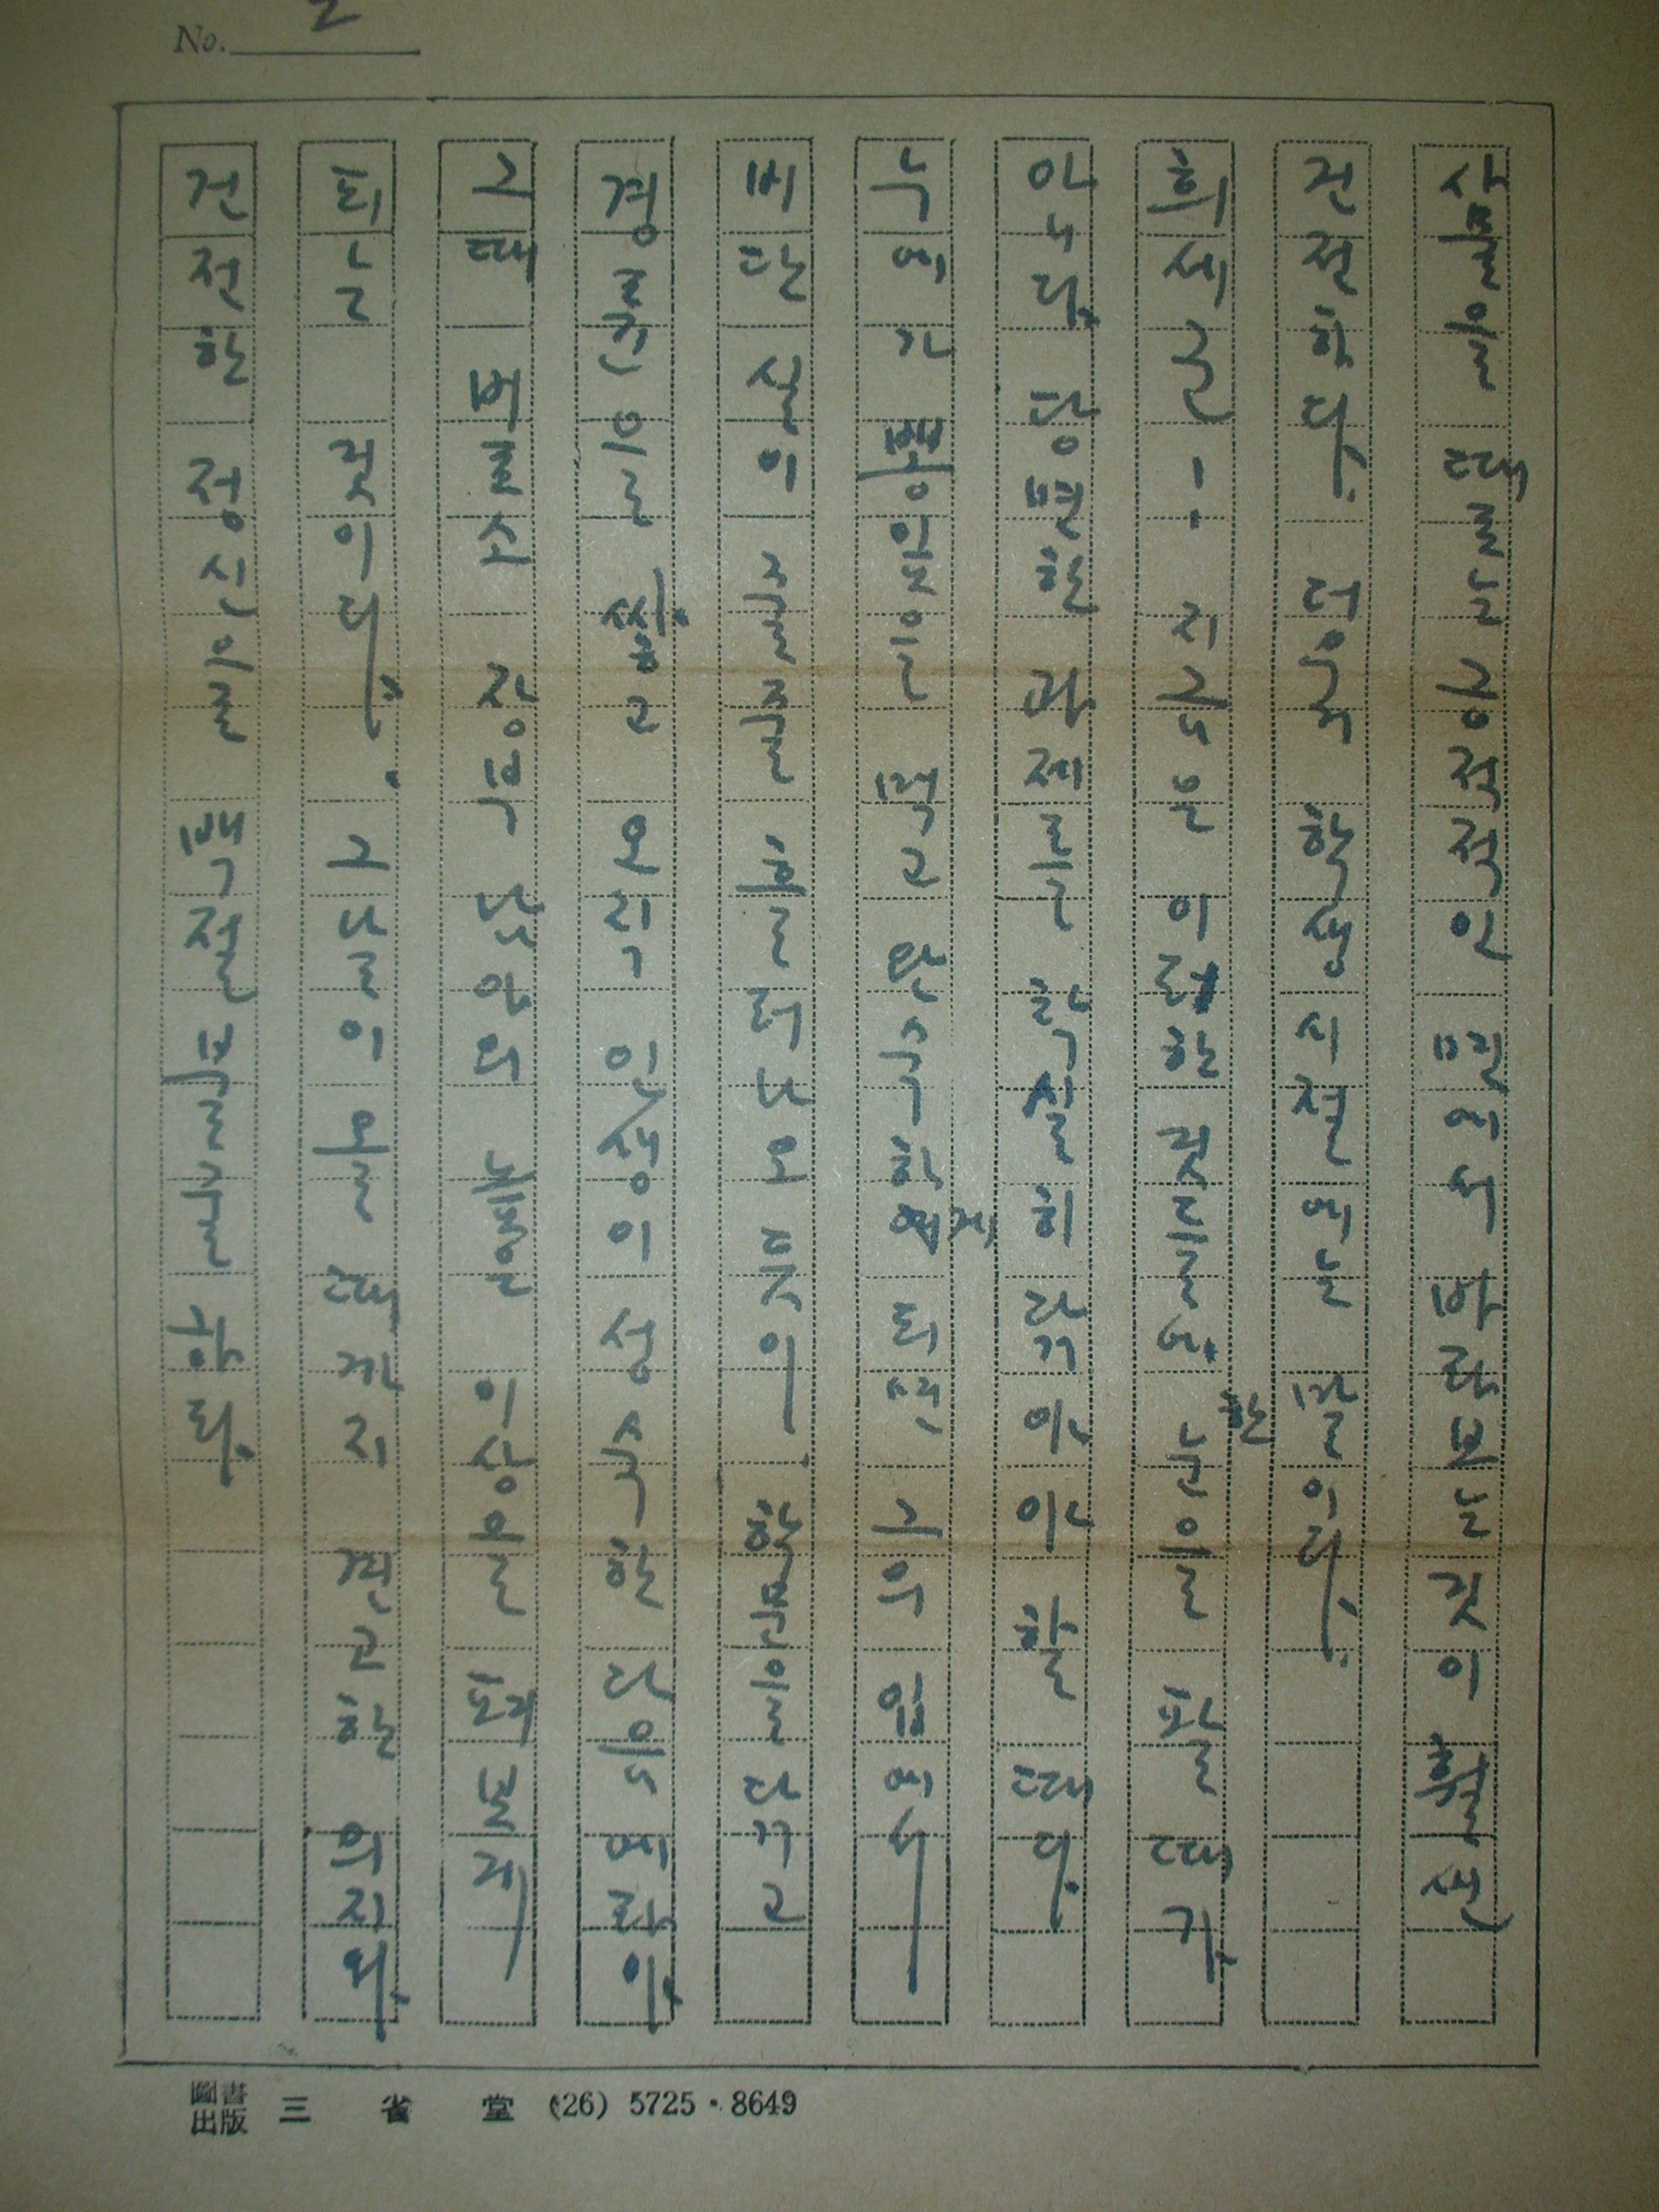 No. 2
사물을 때로는 긍정적인 면에서 바라보는 것이 훨씬
건전하다. 더욱 학생시절에는 말이다.
희세군! 지금은 이러한 것들에 한눈을 팔 때가
아니다. 당면한 과제를 확실히 닦아야 할 때다.
누에가 뽕잎을 먹고 완숙하게 되면 그의 입에서
비단실이 줄줄 흘러나오듯이 학문을 닦고
경륜을 쌓고 오직 인생이 성숙한 다음에라야
그때 비로소 장부 남아의 높은 이상을 펴 보게
되는 것이다. 그날이 올 때까지 견고한 의지와
건전한 정신으로 백절불굴하라.
圖書出版 三省堂 (26) 5725·8649